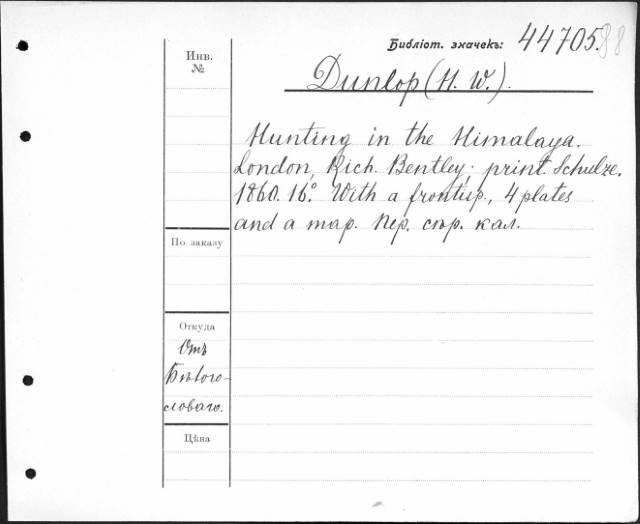 Библіот. значекъ: 44705.88
Инв.
№
Dunlop (H. W.).
Hunting in the Himalaya.
London, Rich. Bentley; print. Schulze.
1860. 16°. With a frontisp., 4 plates
and a map. Пер. сѣр. кал.
По заказу
Откуда
Отъ
Бѣлого-
словаго.
Цѣна